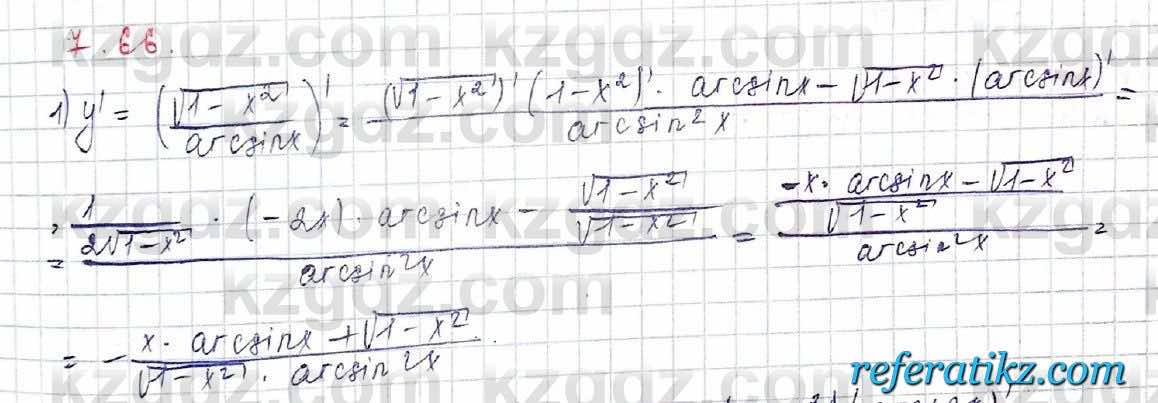 7.66.
1) y' = (√(1-x²) / arcsinx)' = ((√(1-x²))' (1-x²)' · arcsinx - √(1-x²) · (arcsinx)') / arcsin²x =
= (1/(2√(1-x²)) · (-2x) · arcsinx - √(1-x²)/√(1-x²)) / arcsin²x = ((-x · arcsinx - √(1-x²)) / √(1-x²)) / arcsin²x =
= - (x · arcsinx + √(1-x²)) / (√(1-x²) · arcsin²x).
kzgdz.com
referatikz.com